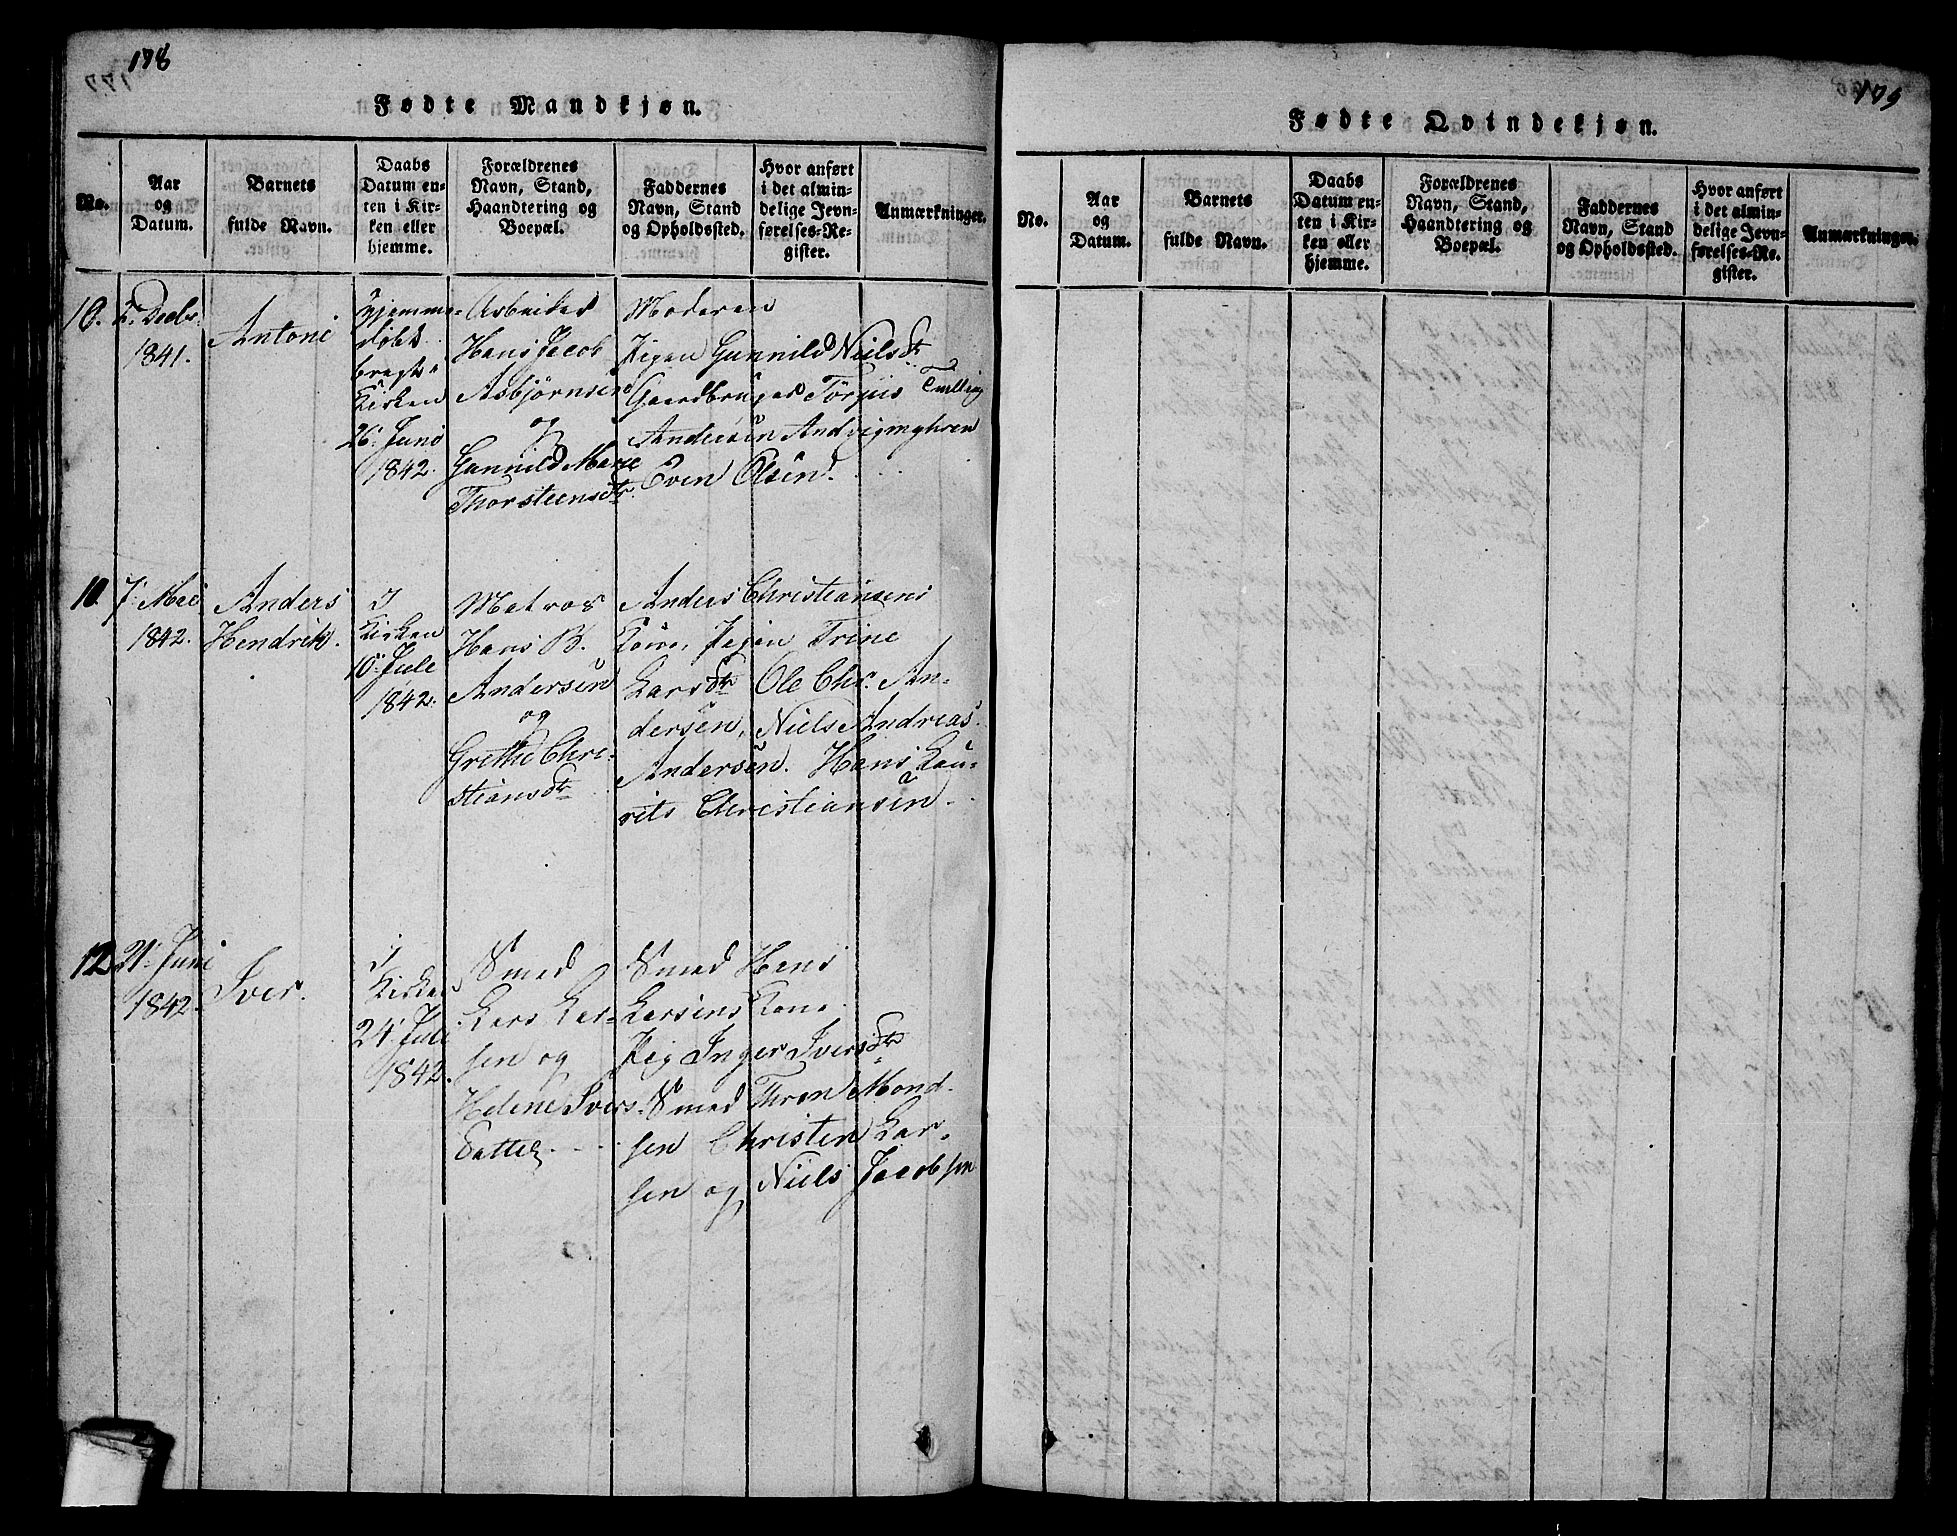 178
Fødte Mandkjøn.
No.
Aar
og
Datum.
Barnets
fulde Navn.
Daabs
Datum en-
ten i Kir-
ken eller
hjemme.
Forældrenes
Navn, Stand,
Haandtering og
Boepæl.
Faddernes
Navn, Stand
og Opholdssted.
Hvor anført
i det almin-
delige Jevn-
førelses-Re-
gister.
Anmærkninger.
10.
Decbr.
1841.
Antoni
Hjemme-
døbt
bragt i
Kirken
26 Juni
1842.
Arbeider
Hans Jacob
Asbjørnsen
og
Gunnild Marie
Thorsteensdtr.
Moderen
Pigen Gunnild Nielsdtr
Gaardbruger Törjus
Andersen Andvigmyhren
Even Olsen.
10.
7. Mai
1842.
Anders
Hendrik.
I
Kirken
10 Jule
1842.
Matros
Hans B.
Andersen
og
Grethe Chri-
stiansdtr
Anders Christiansens
Kone, Pigen Trine
Larsdtr Ole Chr. An-
dersen, Niels Andreas
Andersen. Hans Lau-
rits Christiansen.
12
21 Juni
1842.
Iver.
I
Kirken
24 Juli
1842.
Smed
Lars Lar-
sen og
Helene Ivers-
datter
Smed Hans
Larsens Kone
Pig Inger Iversdtr
Smed Thron Mond-
sen Christen Lar-
sen og Niels Jacobsen
179
Fødte Qvindekjøn.
No.
Aar
og
Datum.
Barnets
fulde Navn.
Daabs
Datum en-
ten i Kir-
ken eller
hjemme.
Forældrenes
Navn, Stand,
Haandtering og
Boepæl.
Faddernes
Navn, Stand
og Opholdssted.
Hvor anført
i det almin-
delige Jevn-
førelses-Re-
gister.
Anmærkninger.